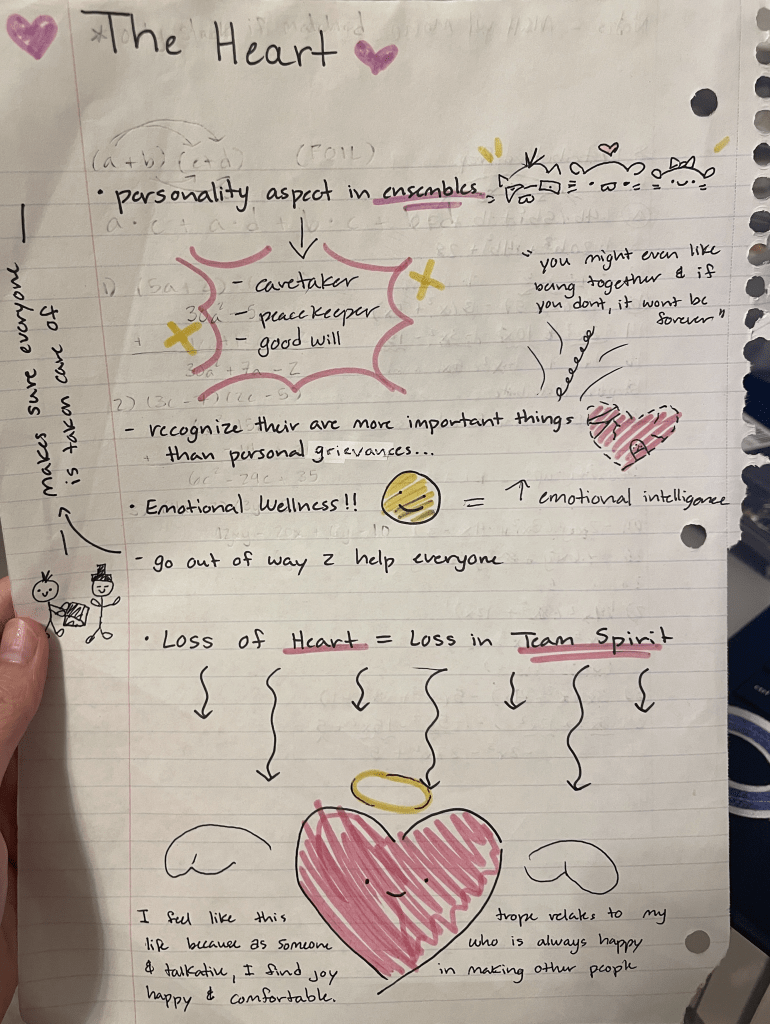 *The Heart
(a+b)(c+d) (FOIL)
• personality aspect in ensembles
- caretaker
- peacekeeper
- good will
"you might even like
being together & if
you dont, it wont be
forever"
- recognize their are more important things
than personal grievances...
• Emotional Wellness!! = ↑ emotional intelligence
- go out of way 2 help everyone
→ makes sure everyone
is taken care of
• Loss of Heart = Loss in Team Spirit
I feel like this trope relates to my
life because as someone who is always happy
& talkative, I find joy in making other people
happy & comfortable.